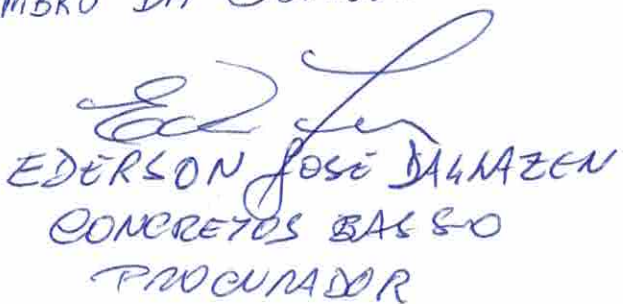 MBRO DA
EDERSON JOSÉ DALNAZEN
CONCRETOS BASSO
PROCURADOR